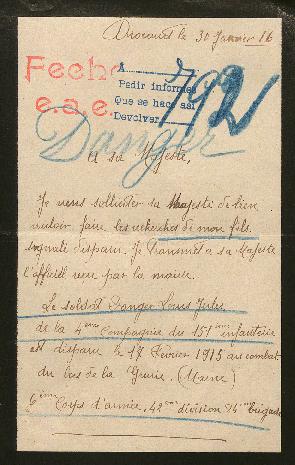 Drocourt le 30 Janvier 16
Fecho
e.a.e.
A
Pedir informes
Que se hace así
Devolver
792
Danger
A sa Majesté,
Je viens solliciter sa Majesté de bien
vouloir faire les recherches de mon fils
signalé disparu. Je transmet a sa Majesté
l'officiel reçu par la mairie.
Le soldat Danger Louis Jules
de la 4ème Compagnie du 151ème infanterie
est disparu le 17 Février 1915 au combat
du bois de la Grurie. (Marne)
6ème Corps d'armée, 42ème division 84me brigade